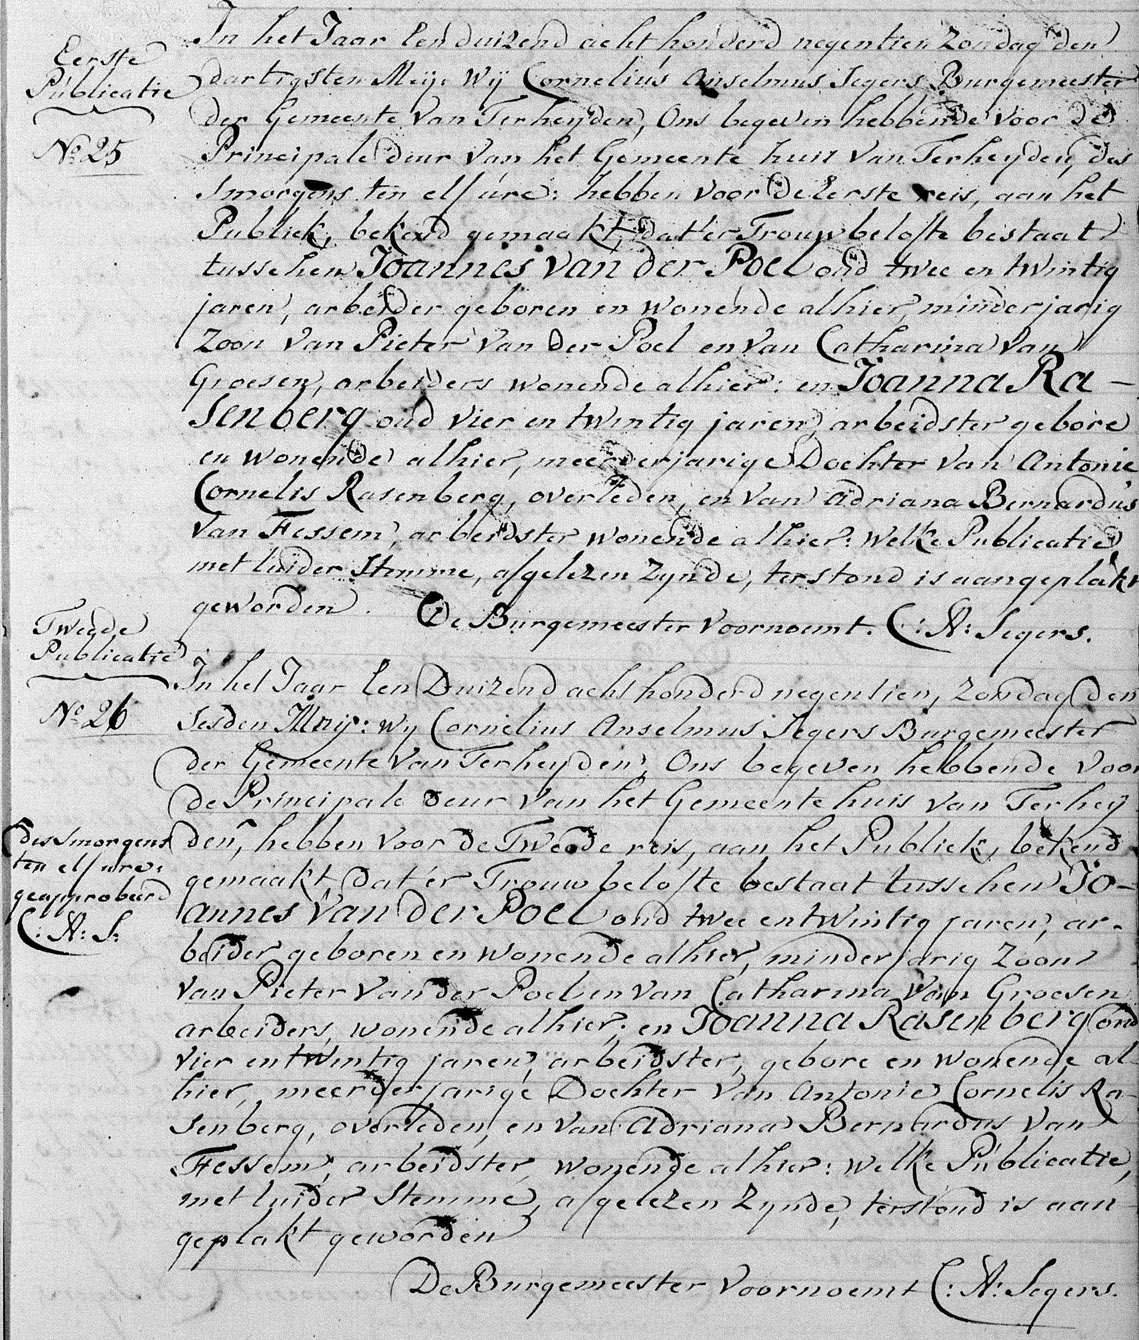 Eerste
Publicatie
No. 25
In het Jaar Een duizend acht honderd negentien Zondag den
dartigsten Meij: Wij Cornelius Anselmus Segers Burgemeester
der Gemeente Van Terheyden, Ons begeven hebbende voor de
Principale deur Van het Gemeente huis Van Terheyden, des
Smorgens ten elf ure: hebben voor de Eerste reis, aan het
Publiek, bekend gemaakt, dat er Trouw belofte bestaat
tusschen Joannes van der Poel oud twee en twintig
jaren, arbeider geboren en wonende alhier, minderjarig
Zoon Van Pieter Van der Poel en van Catharina Van
Groesen, arbeiders wonende alhier: en Joanna Ra-
senberg oud vier en twintig jaren, arbeidster gebore
en wonende alhier, meerderjarige Dochter van Antonie
Cornelis Rasenberg, overleden, en van Adriana Bernardus
Van Fessem, arbeidster wonende alhier: Welke Publicatie,
met luider Stemme, afgelezen Zynde, terstond is aangeplakt
geworden.
De Burgemeester voornoemt. C: A: Segers.
Tweede
Publicatie
No. 26
In het Jaar Een Duizend acht honderd negentien, Zondag den
Sesden Meij: Wij Cornelius Anselmus Segers Burgemeester
der Gemeente Van Terheyden, Ons begeven hebbende voor
de Principale deur Van het Gemeente huis van Terhey
den, hebben voor de Tweede reis, aan het Publiek, bekend
des Smorgens
ten elf ure:
geapprobeerd
C: A: S.
gemaakt dat er Trouw belofte bestaat tusschen Jo-
annes Van der Poel oud twee en twintig jaren, ar-
beider geboren en wonende alhier, minderjarig Zoon
van Pieter Van der Poel en van Catharina Van Groesen
arbeiders, wonende alhier: en Joanna Rasenberg oud
vier en twintig jaren, arbeidster, gebore en wonende al
hier, meerderjarige Dochter Van Antonie Cornelis Ra-
senberg, overleden, en van Adriana Bernardus van
Fessem, arbeidster, wonende alhier: Welke Publicatie,
met luider Stemme, afgelezen Zynde, terstond is aan-
geplakt geworden
De Burgemeester voornoemt C: A: Segers.